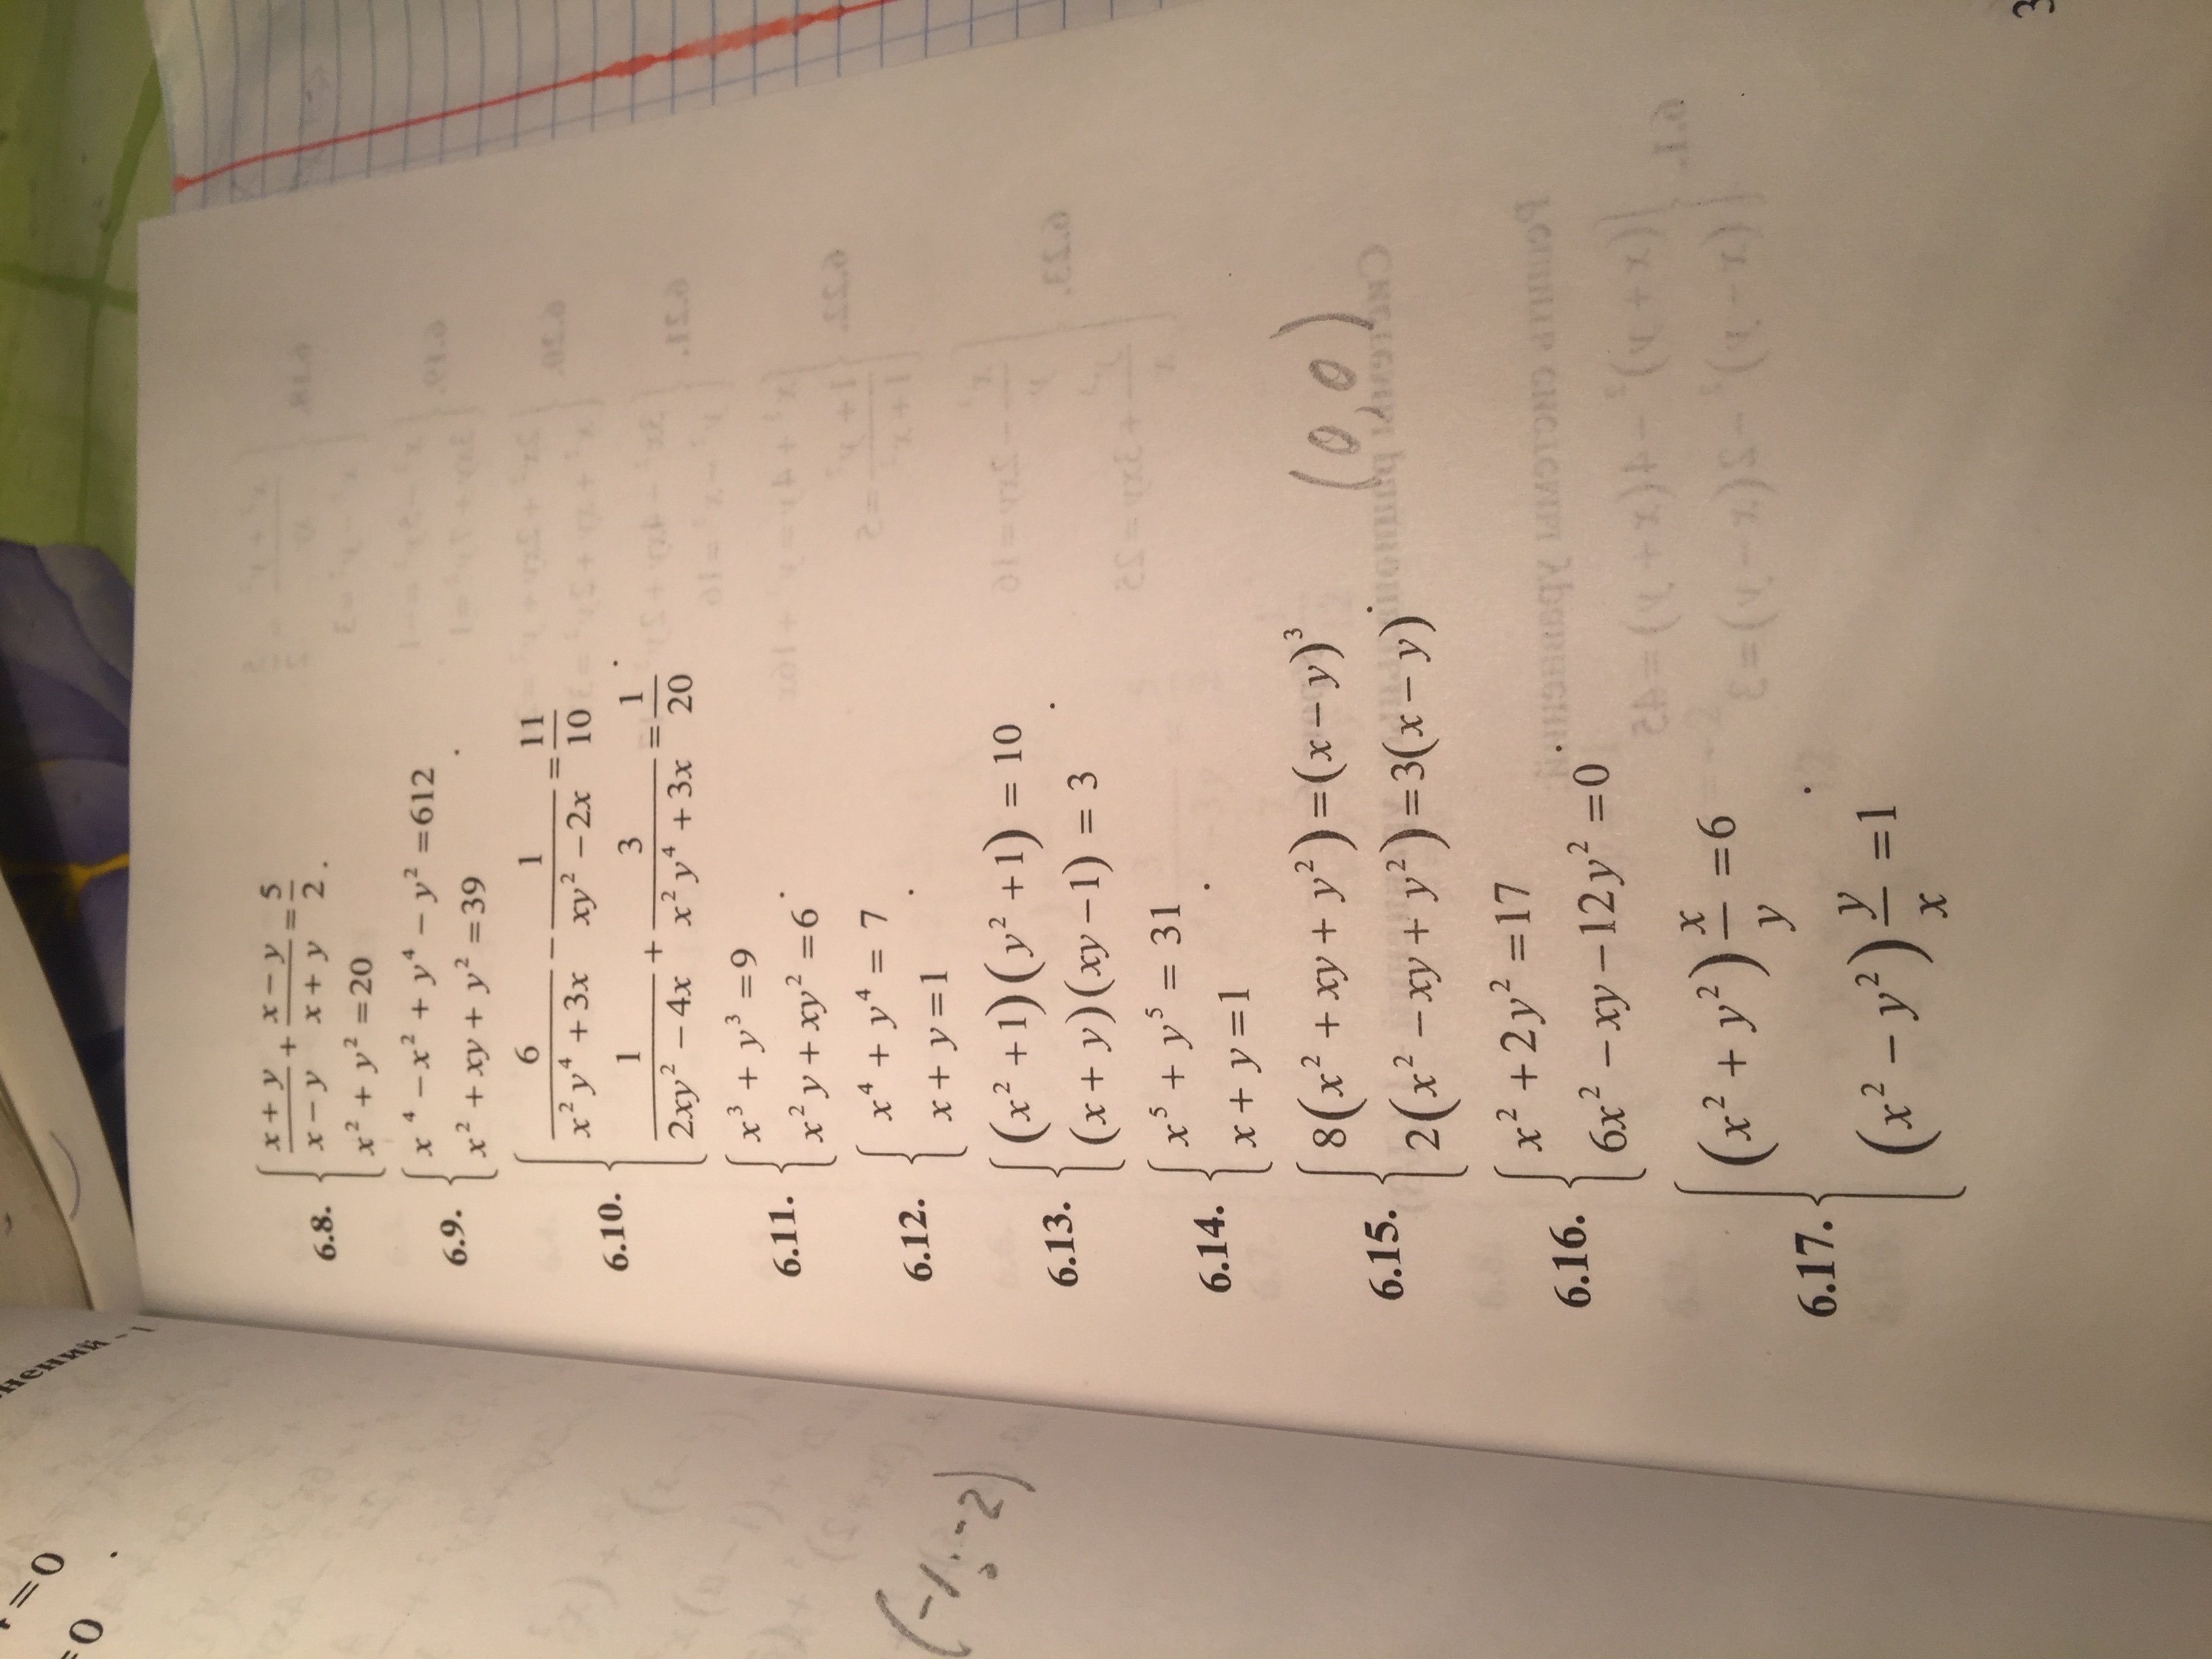 нений - 1
=0
=0
(-1; -2)
6.8. { (x+y)/(x−y) + (x−y)/(x+y) = 5/2
x² + y² = 20 .
6.9. { x⁴ − x² + y⁴ − y² = 612
x² + xy + y² = 39 .
6.10. { 6/(x²y⁴ + 3x) − 1/(xy² − 2x) = 11/10
1/(2xy² − 4x) + 3/(x²y⁴ + 3x) = 1/20 .
6.11. { x³ + y³ = 9
x²y + xy² = 6 .
6.12. { x⁴ + y⁴ = 7
x + y = 1 .
6.13. { (x² + 1)(y² + 1) = 10
(x + y)(xy − 1) = 3 .
6.14. { x⁵ + y⁵ = 31
x + y = 1 .
6.15. { 8(x² + xy + y²) = (x − y)³
2(x² − xy + y²) = 3(x − y) .
(0, 0)
6.16. { x² + 2y² = 17
6x² − xy − 12y² = 0 .
6.17. { (x² + y²) x/y = 6
(x² − y²) y/x = 1 .
3